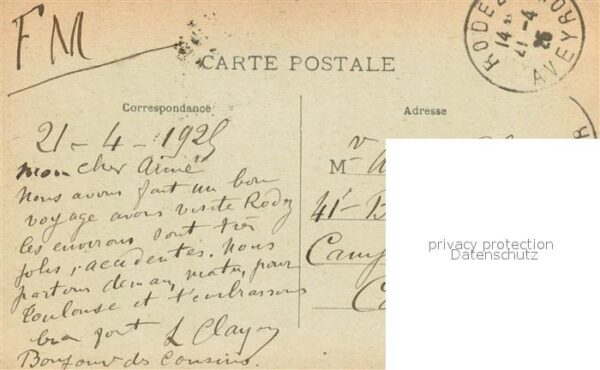 FM
CARTE POSTALE
RODEZ
14
21-4
25
AVEYRON
Correspondance
Adresse
21 - 4 - 1925
mon cher Aimé
Nous avons fait un bon
voyage avons visité Rodez
les environs sont très
jolis, accidentés. Nous
partons demain matin pour
Toulouse et t'embrassons
bien fort
Bonjour des Cousins.
M
41e
Camp
privacy protection
Datenschutz